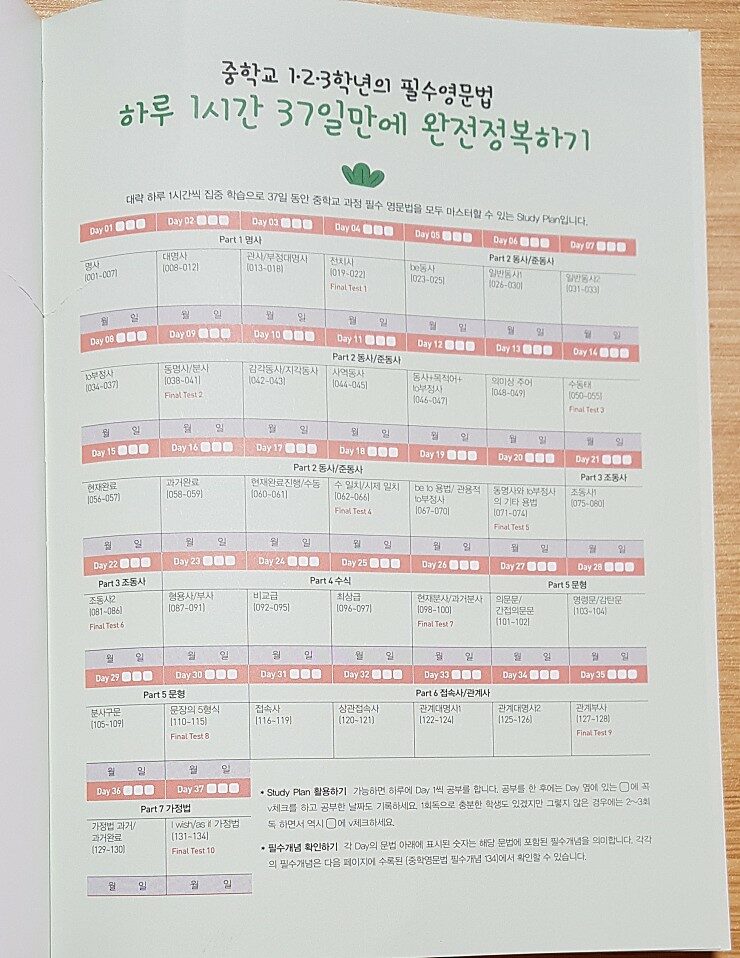 중학교 1·2·3학년의 필수영문법
하루 1시간 37일만에 완전정복하기
대략 하루 1시간씩 집중 학습으로 37일 동안 중학교 과정 필수 영문법을 모두 마스터할 수 있는 Study Plan입니다.
Day 01 Day 02 Day 03 Day 04 Day 05 Day 06 Day 07
Part 1 명사 Part 2 동사/준동사
명사 대명사 관사/부정대명사 전치사 be동사 일반동사1 일반동사2
(001~007) (008~012) (013~018) (019~022) (023~025) (026~030) (031~033)
Final Test 1
월 일 월 일 월 일 월 일 월 일 월 일 월 일
Day 08 Day 09 Day 10 Day 11 Day 12 Day 13 Day 14
Part 2 동사/준동사
to부정사 동명사/분사 감각동사/지각동사 사역동사 동사+목적어+ 의미상 주어 수동태
(034~037) (038~041) (042~043) (044~045) to부정사 (048~049) (050~055)
Final Test 2 (046~047) Final Test 3
월 일 월 일 월 일 월 일 월 일 월 일 월 일
Day 15 Day 16 Day 17 Day 18 Day 19 Day 20 Day 21
Part 2 동사/준동사 Part 3 조동사
현재완료 과거완료 현재완료진행/수동 수 일치/시제 일치 be to 용법/ 관용적 동명사와 to부정사 조동사1
(056~057) (058~059) (060~061) (062~066) to부정사 의 기타 용법 (075~080)
Final Test 4 (067~070) (071~074)
Final Test 5
월 일 월 일 월 일 월 일 월 일 월 일 월 일
Day 22 Day 23 Day 24 Day 25 Day 26 Day 27 Day 28
Part 3 조동사 Part 4 수식 Part 5 문형
조동사2 형용사/부사 비교급 최상급 현재분사/과거분사 의문문/ 명령문/감탄문
(081~086) (087~091) (092~095) (096~097) (098~100) 간접의문문 (103~104)
Final Test 6 Final Test 7 (101~102)
월 일 월 일 월 일 월 일 월 일 월 일 월 일
Day 29 Day 30 Day 31 Day 32 Day 33 Day 34 Day 35
Part 5 문형 Part 6 접속사/관계사
분사구문 문장의 5형식 접속사 상관접속사 관계대명사1 관계대명사2 관계부사
(105~109) (110~115) (116~119) (120~121) (122~124) (125~126) (127~128)
Final Test 8 Final Test 9
월 일 월 일
Day 36 Day 37
Part 7 가정법
가정법 과거/ I wish/as if 가정법
과거완료 (131~134)
(129~130) Final Test 10
월 일 월 일
• Study Plan 활용하기 가능하면 하루에 Day 1씩 공부를 합니다. 공부를 한 후에는 Day 옆에 있는 □에 꼭
v체크를 하고 공부한 날짜도 기록하세요. 1회독으로 충분한 학생도 있겠지만 그렇지 않은 경우에는 2~3회
독 하면서 역시 □에 v체크하세요.
• 필수개념 확인하기 각 Day의 문법 아래에 표시된 숫자는 해당 문법에 포함된 필수개념을 의미합니다. 각각
의 필수개념은 다음 페이지에 수록된 (중학영문법 필수개념 134)에서 확인할 수 있습니다.